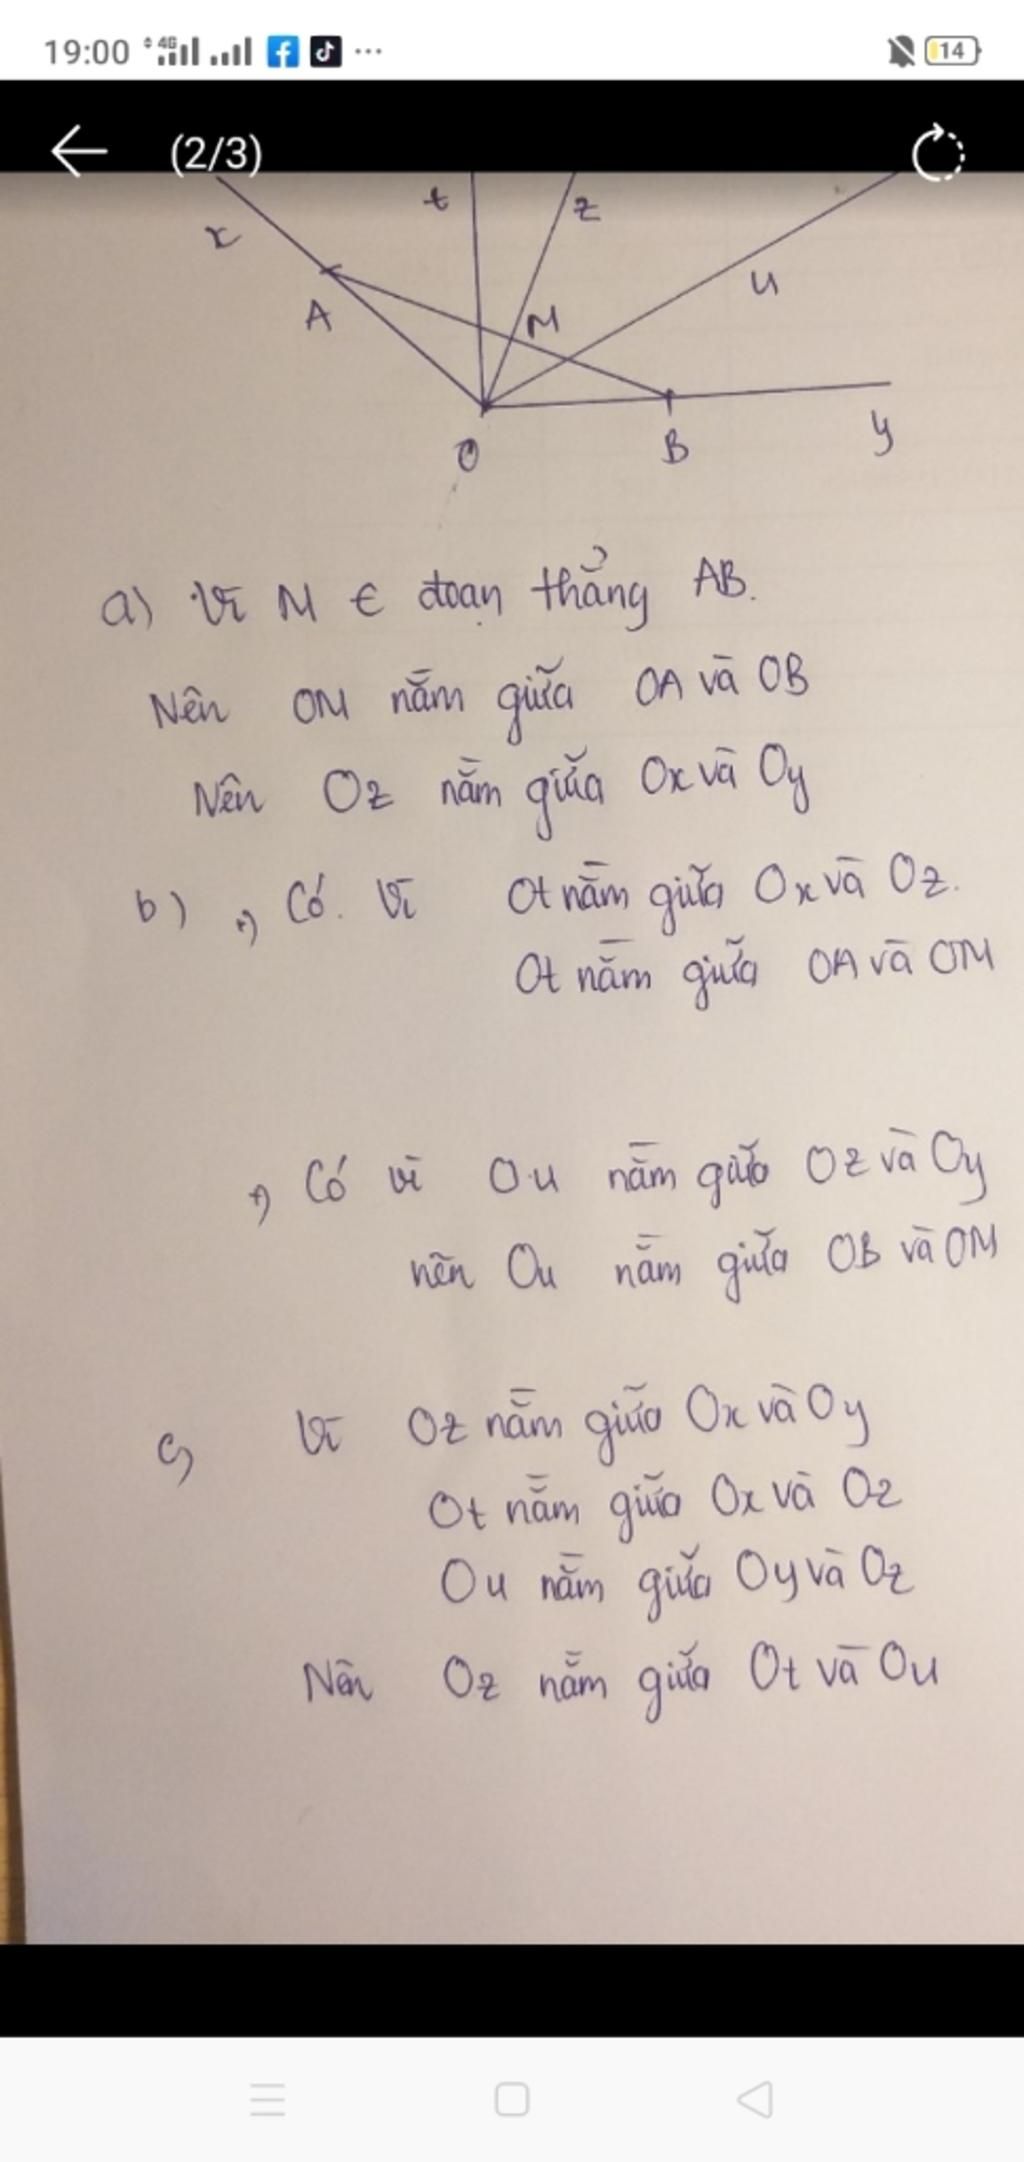 19:00 4G 14
(2/3)
x t z
A M u
O B y
a) Vì M ∈ đoạn thẳng AB.
Nên OM nằm giữa OA và OB
Nên Oz nằm giữa Ox và Oy
b) +) Có. Vì Ot nằm giữa Ox và Oz.
Ot nằm giữa OA và OM
+) Có vì Ou nằm giữa Oz và Oy
nên Ou nằm giữa OB và OM
c) Vì Oz nằm giữa Ox và Oy
Ot nằm giữa Ox và Oz
Ou nằm giữa Oy và Oz
Nên Oz nằm giữa Ot và Ou